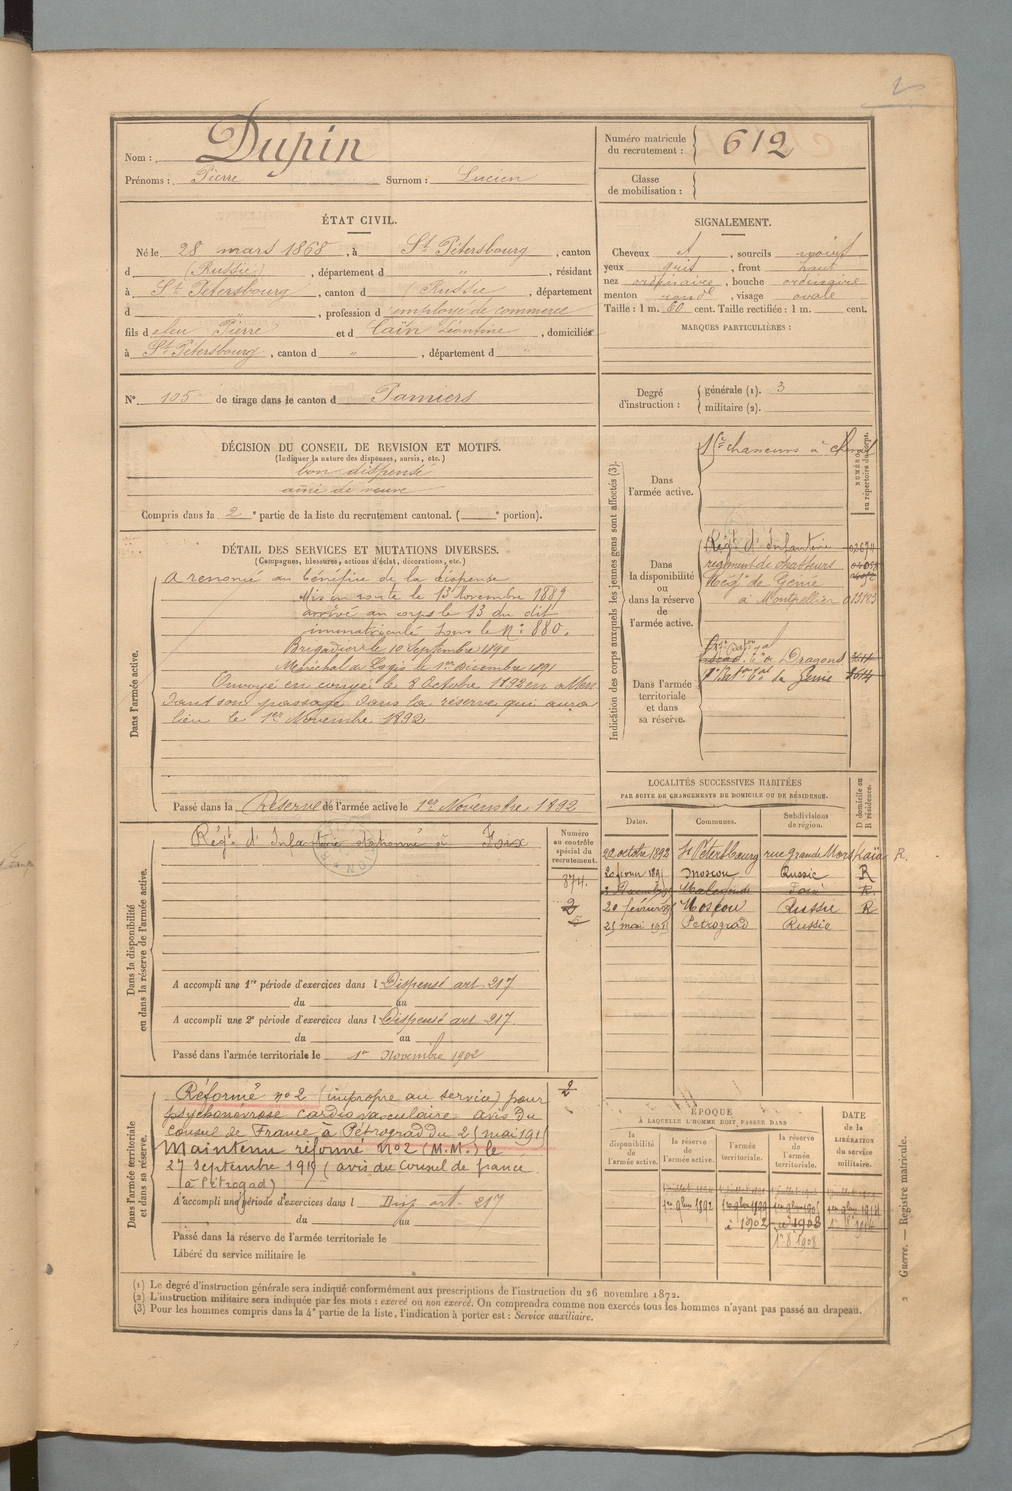 2
Nom : Dupin
Prénoms : Pierre Surnom : Lucien
Numéro matricule du recrutement : 612
Classe de mobilisation :
ÉTAT CIVIL.
Né le 28 mars 1868, à St Pétersbourg, canton
d (Russie), département d ", résidant
à St Pétersbourg, canton d (Russie, département
d ", profession d employé de commerce
fils d efeu Pierre et d Caïn Léontine, domiciliés
à St Pétersbourg, canton d ", département d "
SIGNALEMENT.
Cheveux , sourcils noirs
yeux gris, front haut
nez ordinaire, bouche ordinaire
menton rond, visage ovale
Taille : 1 m. 60 cent. Taille rectifiée : 1 m. cent.
MARQUES PARTICULIÈRES :
N° 105 de tirage dans le canton d Pamiers
Degré d'instruction : générale (1). 3
militaire (2).
DÉCISION DU CONSEIL DE REVISION ET MOTIFS.
(Indiquer la nature des dispenses, sursis, etc.)
bon dispensé
aîné de veuve
Compris dans la 2e partie de la liste du recrutement cantonal. ( e portion).
DÉTAIL DES SERVICES ET MUTATIONS DIVERSES.
(Campagnes, blessures, actions d'éclat, décorations, etc.)
Dans l'armée active.
A renoncé au bénéfice de la dispense
Mis en route le 13 Novembre 1889
arrivé au corps le 13 du dit
immatriculé sous le N° 880.
Brigadier le 10 Septembre 1890
Maréchal des Logis le 1er Décembre 1891
Envoyé en congé le 8 Octobre 1892 en atten
dant son passage dans la réserve qui aura
lieu le 1er Novembre 1892
Passé dans la Réserve de l'armée active le 1er Novembre 1892
Indication des corps auxquels les jeunes gens sont affectés (3).
NUMÉROS au répertoire du corps.
Dans l'armée active.
chasseurs à cheval
Dans la disponibilité ou dans la réserve de l'armée active.
Régt d'Infanterie
régiment de chasseurs
de Génie
à Montpellier 013193
Dans l'armée territoriale et dans sa réserve.
Dragons
du Génie
Dans la disponibilité ou dans la réserve de l'armée active.
Régt d'Infanterie stationné à Foix
Numéro au contrôle spécial du recrutement.
874.
2
A accompli une 1re période d'exercices dans l Dispensé art 217
du au
A accompli une 2e période d'exercices dans l Dispensé art 217.
du au
Passé dans l'armée territoriale le 1er Novembre 1902
LOCALITÉS SUCCESSIVES HABITÉES
PAR SUITE DE CHANGEMENTS DE DOMICILE OU DE RÉSIDENCE.
Dates. Communes. Subdivisions de région. D domicile ou R résidence.
22 octobre 1892 St Pétersbourg rue grande Morskaïa R.
Moscou Russie R
20 février Moscou Russie R
25 mai Petrograd Russie
Dans l'armée territoriale et dans sa réserve.
Réformé n° 2 (impropre au service) pour
psychonévrose cardio vasculaire avis du
consul de France à Pétrograd du
Maintenu réformé n° 2 (M.M.) le
27 Septembre (avis du Consul de france
à Petrogad)
A accompli une période d'exercices dans l Disp art. 217
du au
Passé dans la réserve de l'armée territoriale le
Libéré du service militaire le
ÉPOQUE
À LAQUELLE L'HOMME DOIT PASSER DANS
la disponibilité de l'armée active. la réserve de l'armée active. l'armée territoriale. la réserve de l'armée territoriale. DATE de la LIBÉRATION du service militaire.
1er 9bre 1892
1902 1908
1er 8 1908
(1) Le degré d'instruction générale sera indiqué conformément aux prescriptions de l'instruction du 26 novembre 1872.
(2) L'instruction militaire sera indiquée par les mots : exercé ou non exercé. On comprendra comme non exercés tous les hommes n'ayant pas passé au drapeau.
(3) Pour les hommes compris dans la 4e partie de la liste, l'indication à porter est : Service auxiliaire.
2 Guerre. — Registre matricule.